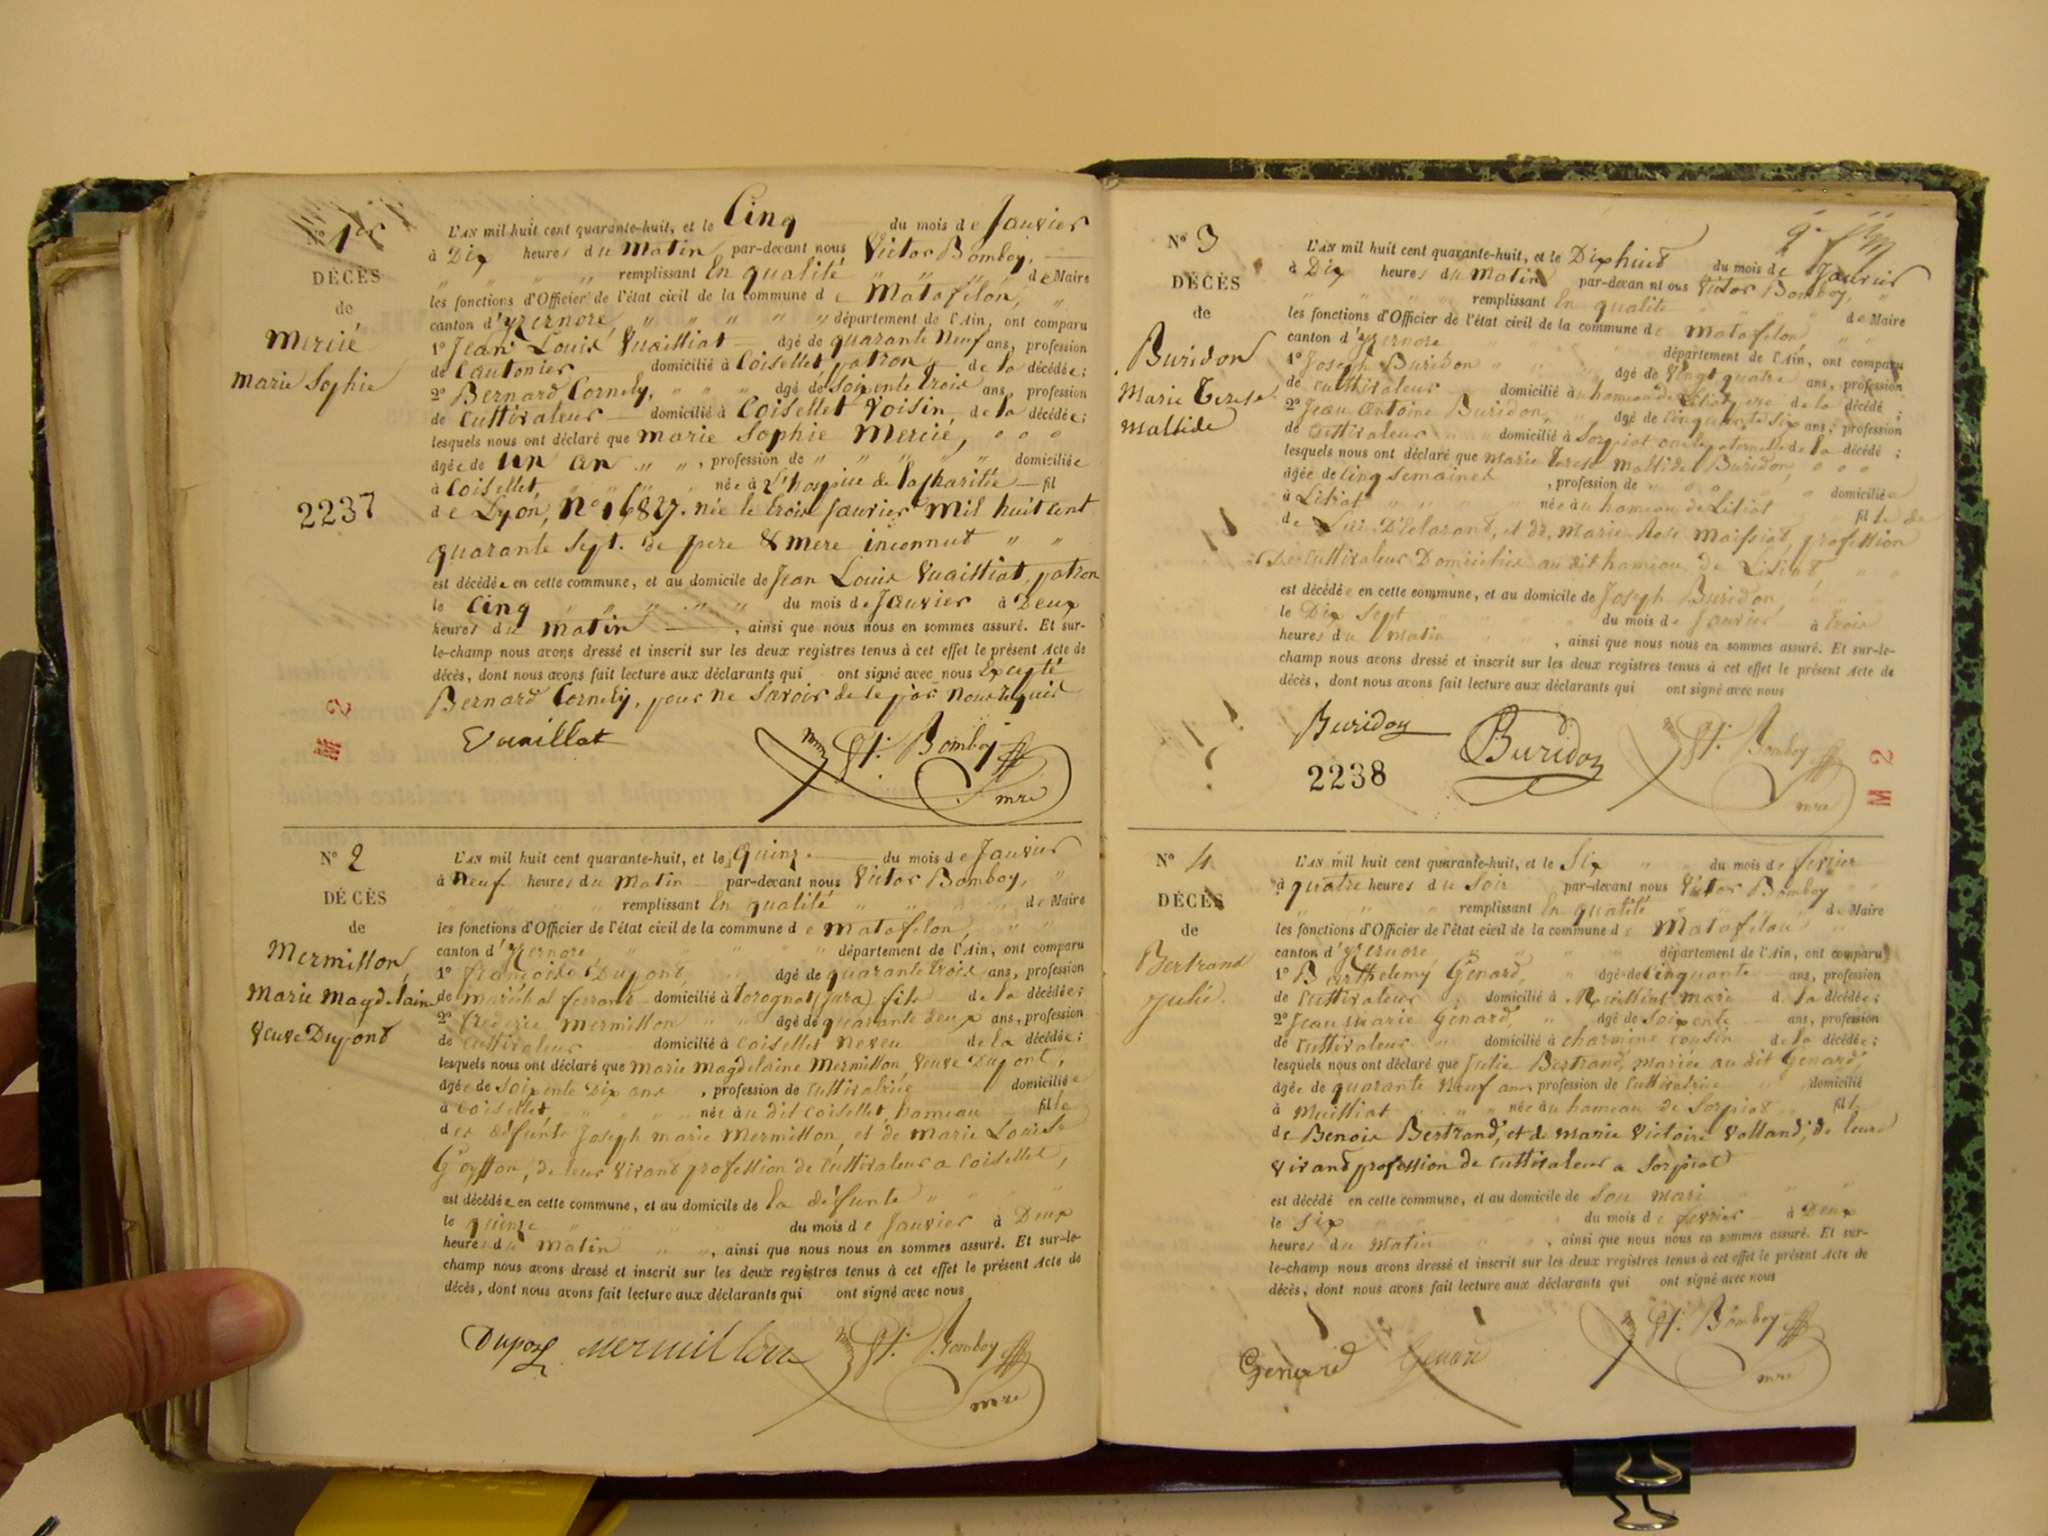 N° 1er
DÉCÈS
de
Mercié
Marie Sophie
2237
M 2
L'AN mil huit cent quarante-huit, et le Cinq du mois de Janvier
à Dix heures du Matin par-devant nous Victor Bomboy,
remplissant En qualité de Maire
les fonctions d'Officier de l'état civil de la commune de Matafelon,
canton d'yzernore, département de l'Ain, ont comparu
1° Jean Louis Vuailliat âgé de quarante Neuf ans, profession
de Cantonier domicilié à Coisellet, patron de la décédée;
2° Bernard Cornely, âgé de Soixente trois ans, profession
de Cultivateur domicilié à Coisellet Voisin de la décédée;
lesquels nous ont déclaré que marie Sophie Mercié,
âgée de un an, profession de domiciliée
à Coisellet, née à L'hospice de la charitée fil
de Lyon, N° 16827. née le trois Janvier Mil huit cent
quarante Sept. de pere & mere inconnut
est décédée en cette commune, et au domicile de Jean Louis Vuailliat, patron
le Cinq du mois de Janvier à Deux
heures du matin, ainsi que nous nous en sommes assuré. Et sur-
le-champ nous avons dressé et inscrit sur les deux registres tenus à cet effet le présent Acte de
décès, dont nous avons fait lecture aux déclarants qui ont signé avec nous Excepté
Bernard Cornely, pour ne Savoir de ce par Nous requis
Vuaillat Bomboy mre
N° 2
DÉCÈS
de
Mermillon,
Marie Magdelaine
Veuve Dupont
L'AN mil huit cent quarante-huit, et le Quinze du mois de Janvier
à Neuf heures du Matin par-devant nous Victor Bomboy,
remplissant En qualité de Maire
les fonctions d'Officier de l'état civil de la commune de matafelon,
canton d'yzernore département de l'Ain, ont comparu
1° françois Dupont, âgé de quarante trois ans, profession
de maréchal ferrant domicilié à Corognat (Jura) fils de la décédée;
2° frederic mermillon âgé de quarante deux ans, profession
de Cultivateur domicilié à Coisellet neveu de la décédée;
lesquels nous ont déclaré que marie magdelaine Mermillon, Veuve Dupont,
âgée de soixente dix ans, profession de Cultivatrice domiciliée
à Coisellet, née au dit Coisellet, hameau fille
des défunts Joseph marie Mermillon, et de Marie Louise
Goyffon, de leur Vivant profession de Cultivateur a Coisellet,
est décédée en cette commune, et au domicile de la défunte
le quinze du mois de Janvier à Deux
heures du Matin, ainsi que nous nous en sommes assuré. Et sur-le-
champ nous avons dressé et inscrit sur les deux registres tenus à cet effet le présent Acte de
décès, dont nous avons fait lecture aux déclarants qui ont signé avec nous
Dupont mermillon Bomboy mre
N° 3
DÉCÈS
de
Buridon
Marie Terese
Maltide
L'AN mil huit cent quarante-huit, et le Dixhuit du mois de Janvier
à Dix heures du Matin par-devant nous Victor Bomboy,
remplissant En qualité de Maire
les fonctions d'Officier de l'état civil de la commune de matafelon
canton d'yzernore département de l'Ain, ont comparu
1° Joseph Buridon âgé de Vingt quatre ans, profession
de Cultivateur domicilié au hameau de Litiat, pere de la décédé;
2° Jean Antoine Buridon, âgé de Cinquante Six ans, profession
de Cultivateur domicilié à Sorpiat oncle paternelle de la décédé;
lesquels nous ont déclaré que marie Terese Maltide Buridon,
âgée de Cinq Semaines, profession de domiciliée
à Litiat née au hameau de Litiat fille de
de Lui Déclarant, et de, marie Rose Maissiat, profession
De Cultivateur Domiciliés au dit hameau de Litiat
est décédée en cette commune, et au domicile de Joseph Buridon,
le Dix Sept du mois de Janvier à trois
heures du Matin, ainsi que nous nous en sommes assuré. Et sur-le-
champ nous avons dressé et inscrit sur les deux registres tenus à cet effet le présent Acte de
décès, dont nous avons fait lecture aux déclarants qui ont signé avec nous
Buridon Buridon Bomboy mre
2238
M 2
N° 4
DÉCÈS
de
Bertrand
Julie.
L'AN mil huit cent quarante-huit, et le Six du mois de fevrier
à quatre heures du Soir par-devant nous Victor Bomboy
remplissant En qualité de Maire
les fonctions d'Officier de l'état civil de la commune de Matafelon
canton d'yzernore département de l'Ain, ont comparu
1° Barthelemy Genard, âgé de Cinquante ans, profession
de Cultivateur domicilié à mari de la décédée;
2° Jean marie Genard, âgé de Soixente ans, profession
de Cultivateur domicilié à charmine cousin de la décédée;
lesquels nous ont déclaré que Julie Bertrand, mariée au dit Genard,
âgée de quarante Neuf ans, profession de Cultivatrice domicilié
à née au hameau de Sorpiat fille
de Benoit Bertrand, et de marie Victoire Volland, de leurs
Vivant profession de Cultivateur a Sorpiat
est décédé en cette commune, et au domicile de Son mari
le Six du mois de fevrier à Deux
heures du Matin, ainsi que nous nous en sommes assuré. Et sur-
le-champ nous avons dressé et inscrit sur les deux registres tenus à cet effet le présent Acte de
décès, dont nous avons fait lecture aux déclarants qui ont signé avec nous
Genard Genard Bomboy mre